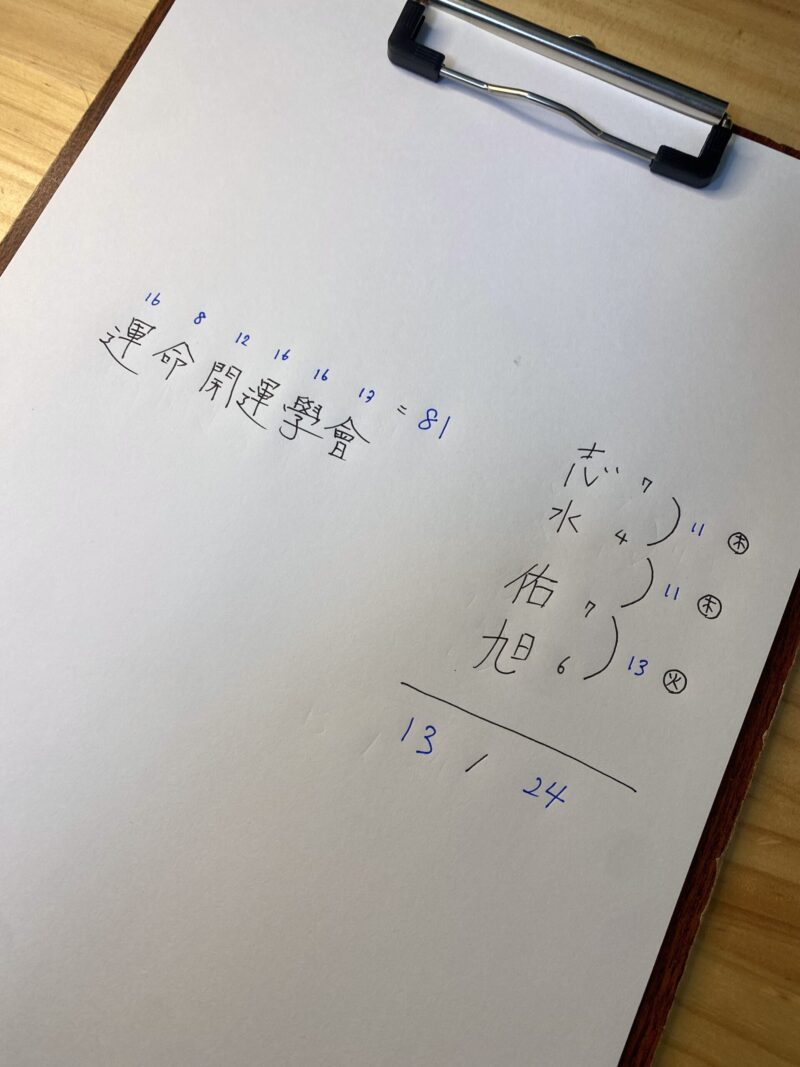 16 8 12 16 16 13
運命開運學會 = 81
志 7
水 4 ) 11 ㊍
佑 7 ) 11 ㊍
旭 6 ) 13 ㊋
13 / 24